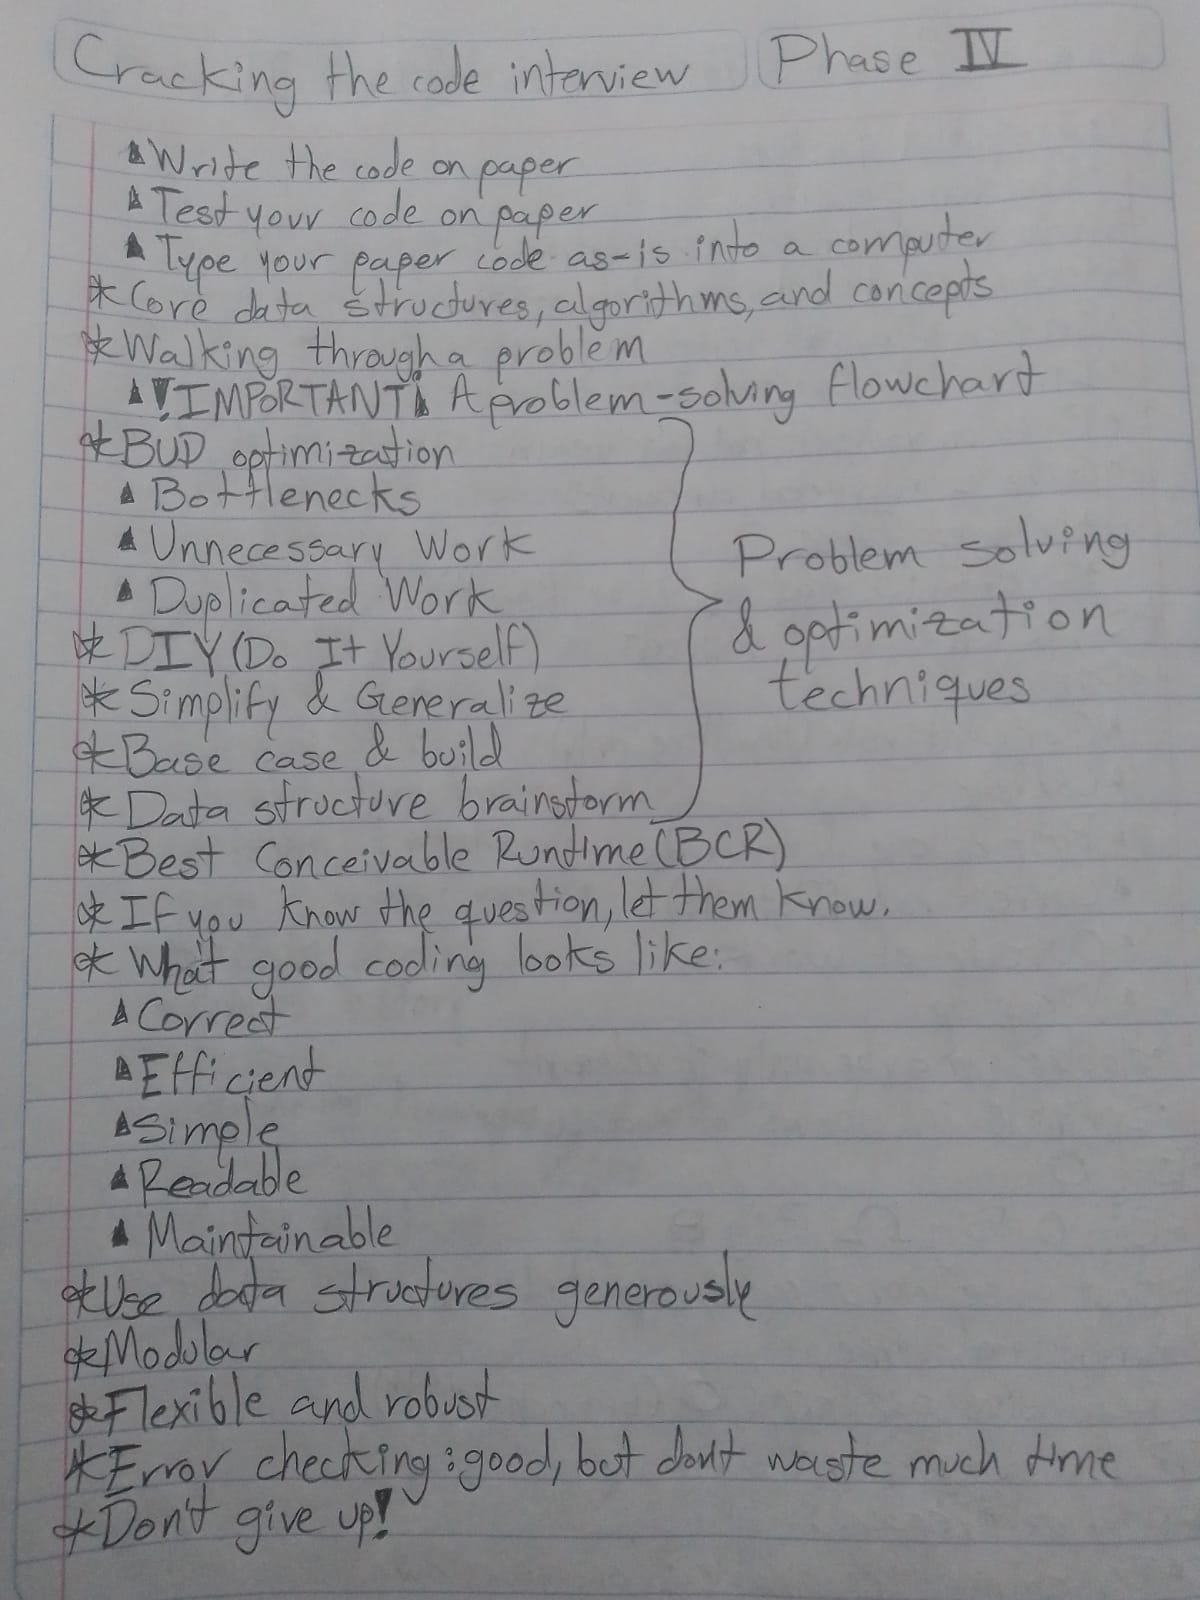 Cracking the code interview Phase IV
▲Write the code on paper
▲Test your code on paper
▲Type your paper code as-is into a computer
*Core data structures, algorithms, and concepts
*Walking through a problem
▲!IMPORTANT¡ A problem-solving flowchart
*BUD optimization
▲Bottlenecks
▲Unnecessary Work
▲Duplicated Work
*DIY (Do It Yourself)
*Simplify & Generalize
*Base case & build
*Data structure brainstorm
Problem solving
& optimization
techniques
*Best Conceivable Runtime (BCR)
*If you know the question, let them know.
*What good coding looks like:
▲Correct
▲Efficient
▲Simple
▲Readable
▲Maintainable
*Use data structures generously
*Modular
*Flexible and robust
*Error checking: good, but don't waste much time
*Don't give up!